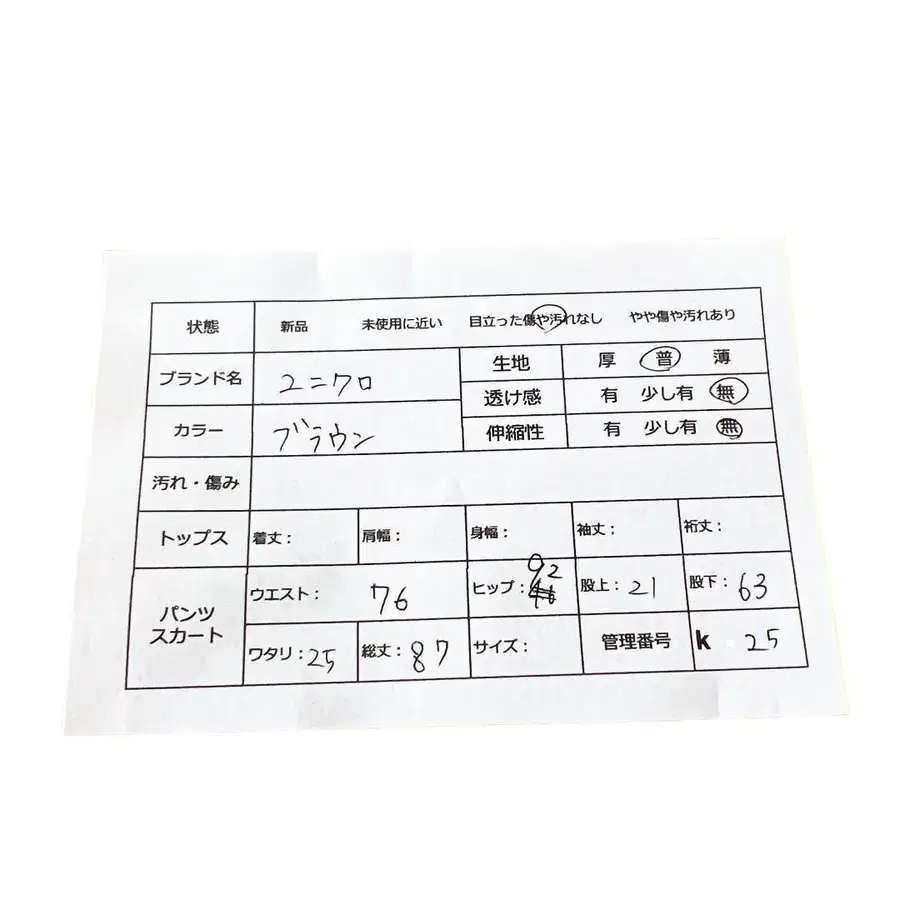 状態 新品 未使用に近い 目立った傷や汚れなし やや傷や汚れあり
ブランド名 ユニクロ 生地 厚 普 薄
透け感 有 少し有 無
カラー ブラウン 伸縮性 有 少し有 無
汚れ・傷み
トップス 着丈： 肩幅： 身幅： 袖丈： 裄丈：
パンツ スカート ウエスト： 76 ヒップ： 92 股上： 21 股下： 63
ワタリ： 25 総丈： 87 サイズ： 管理番号 k 25